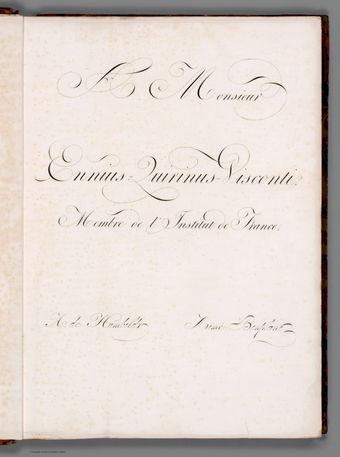 A Monsieur
Ennius-Quirinus-Visconti,
Membre de l'Institut de France.
A. de Humboldt Aimé Bonpland